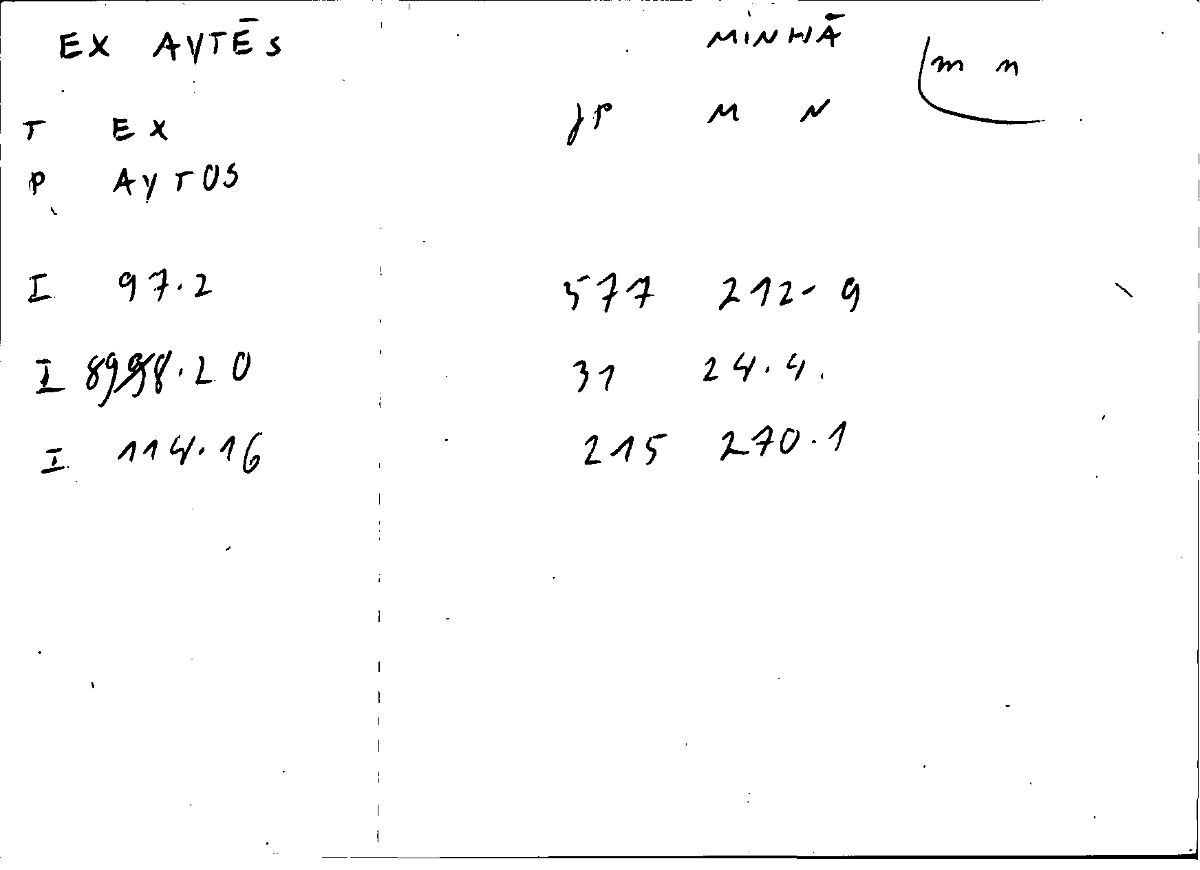 EX AYTĒS MINHĀ m n
T EX JP M N
P AYTOS
I 97.2 577 212-9
I 98.20 31 24.4.
I 114.16 215 270.1